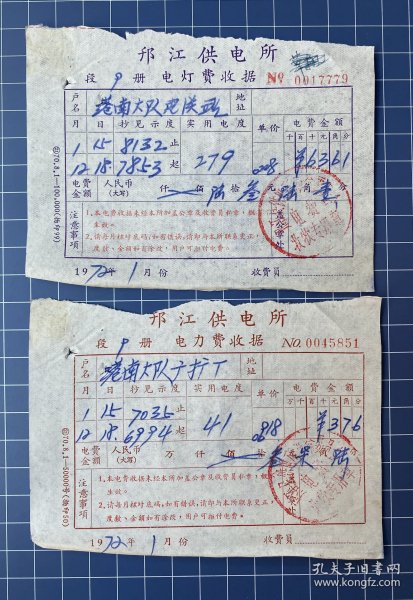 邗江供电所
段 9 册 电灯费收据 No 0017779
户名 港南大队 地址
月 日 抄见示度 实用电度 单价 电费金额
千 百 十 元 角 分
1 15 8132 止
12 18 7853 起 279 ¥6361
电费金额 人民币(大写) 仟 佰 陆 拾 叁 元 陆 角 壹
注意事项
1.本电费收据未经本所加盖公章及收费员私章，概不生效。
2.请每月核对底码；如有错误，请即与本所联系更正，度数、金额如有涂改，用户可拒付电费。
1972年 1 月份 收费员
邗江供电所
段 9 册 电力费收据 NO. 0045851
户名 港南大队 地址
月 日 抄见示度 实用电度 单价 电费金额
万 千 百 十 元 角 分
1 15 7035 止
12 18 6994 起 41 ¥376
电费金额 人民币(大写) 万 仟 佰 叁 柒 陆
注意事项
1.本电费收据未经本所加盖公章及收费员私章，概不生效。
2.请每月核对底码；如有错误，请即与本所联系更正，度数、金额如有涂改，用户可拒付电费。
1972年 1 月份 收费员
孔夫子旧书网
www.kongfz.com